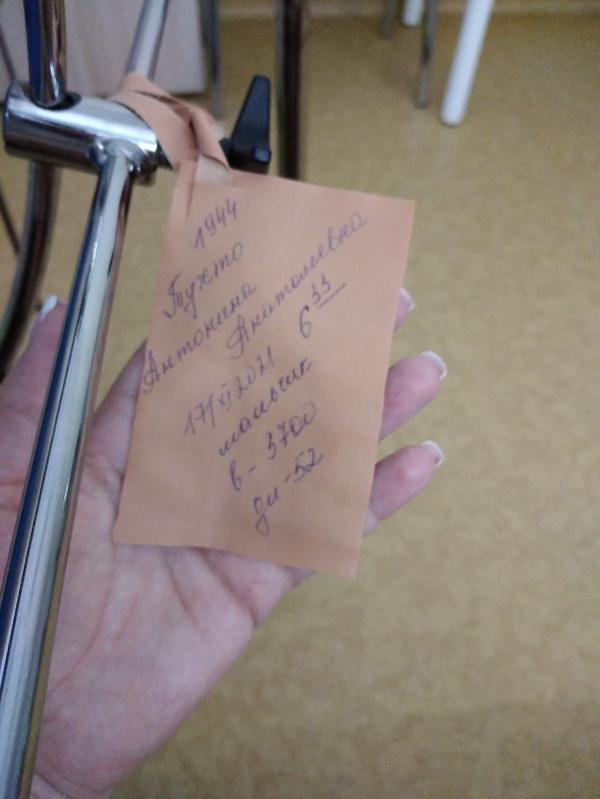 1944
Тухто
Антонина
Анатольевна
17/XI 2021 6 33
мальчик
в - 3700
дл - 52